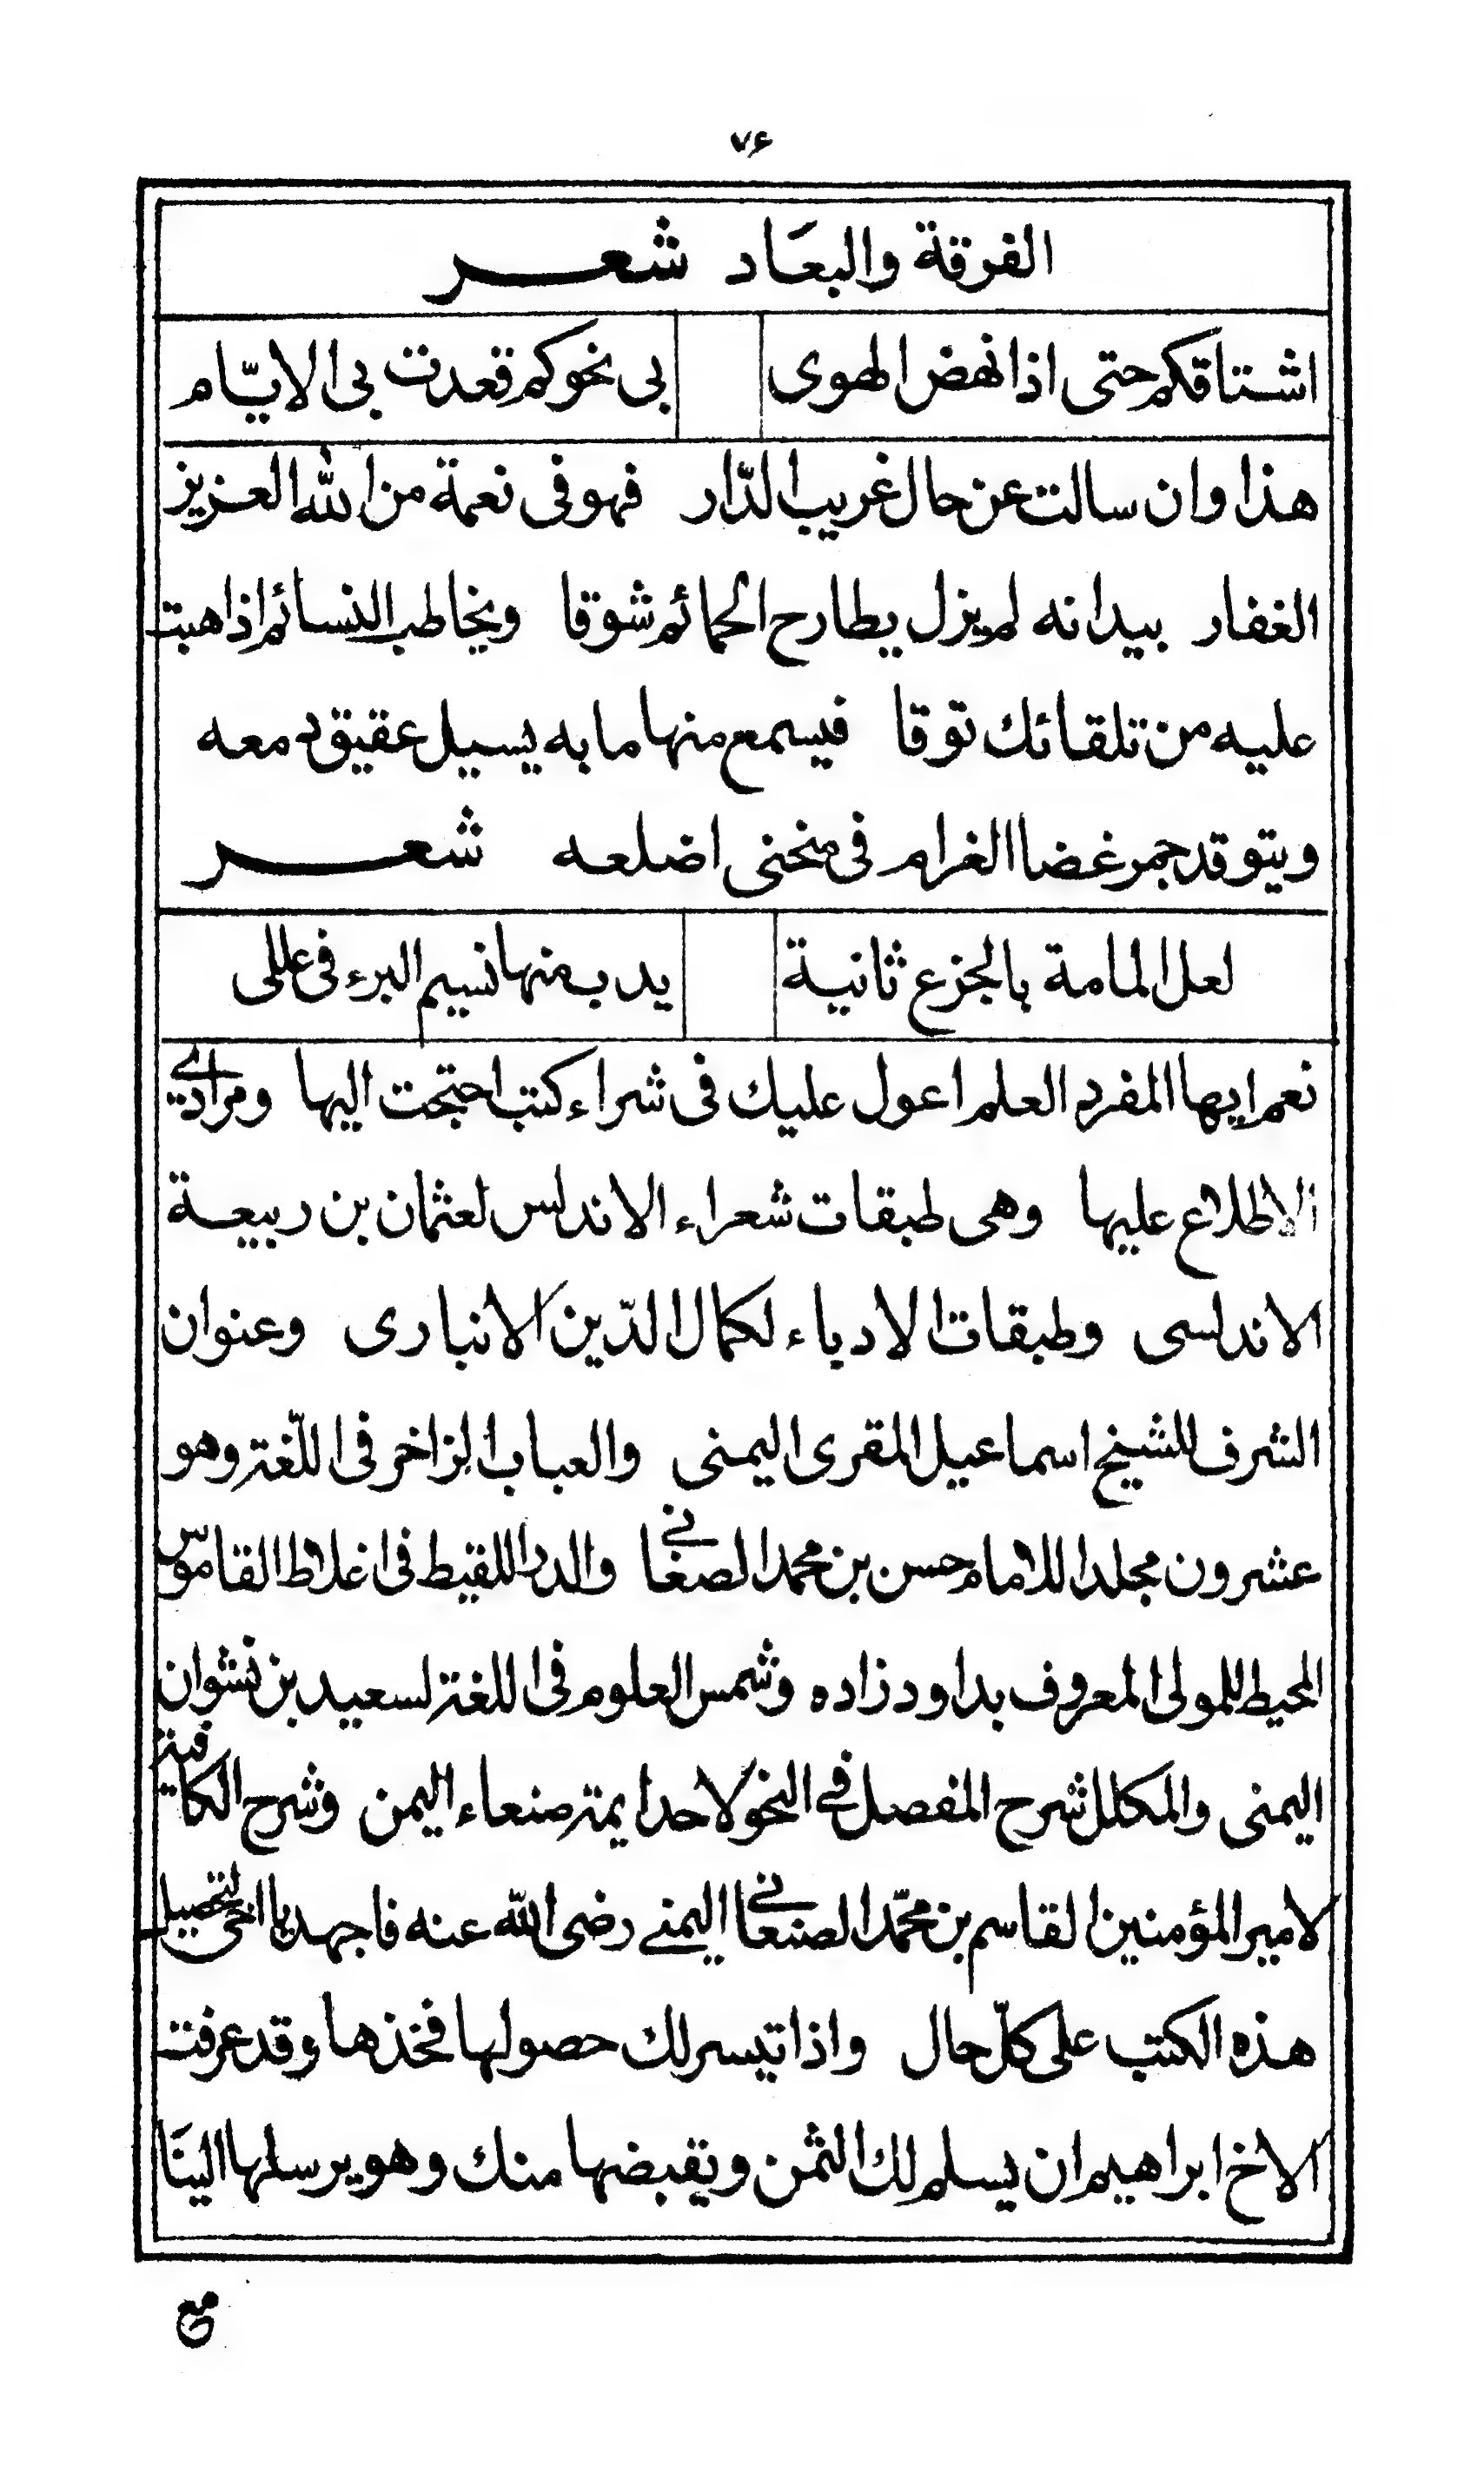 ٧۶
الفرقة والبعَاد شعر
اشتاقكم حتى اذا نهض الهوى بى نحوكم قعدت بى الايّام
هذا وان سالت عن حال غريب الدّار فهو فى نعمة من الله العزيز
الغفار بيد انه لم يزل يطارح الحمائم شوقا ويخاطب النسائم اذا هبت
عليه من تلقائك توقا فيسمع منها ما به يسيل عقيق دمعه
ويتوقد جمر غضا الغرام فى منحنى اضلعه شعر
لعل المامة بالجزع ثانية يدب منها نسيم البرء فى عللى
نعم ايها المفرد العلم اعول عليك فى شراء كتب احتجت اليها ومرادي
الاطلاع عليها وهى طبقات شعراء الاندلس لعثمان بن ربيعة
الاندلسى وطبقات الادباء لكمال الدّين الانبارى وعنوان
الشرف للشيخ اسماعيل المقرى اليمنى والعباب الزاخر فى اللّغة وهو
عشرون مجلدا للامام حسن بن محمد الصغاني والدر اللقيط فى اغلاط القاموس
المحيط للمولى المعروف بداود زاده وشمس العلوم فى اللغة لسعيد بن نشوان
اليمنى والمكلل شرح المفصل في النحو لاحد ايمة صنعاء اليمن وشرح الكافية
لامير المؤمنين القاسم بن محمّد الصنعاني اليمني رضى الله عنه فاجهد يا اخى لتحصيل
هذه الكتب على كلّ حال واذا تيسر لك حصولها فخذها وقد عرفت
الاخ ابراهيم ان يسلم لك الثمن ويقبضها منك وهو يرسلها الينَا
مع